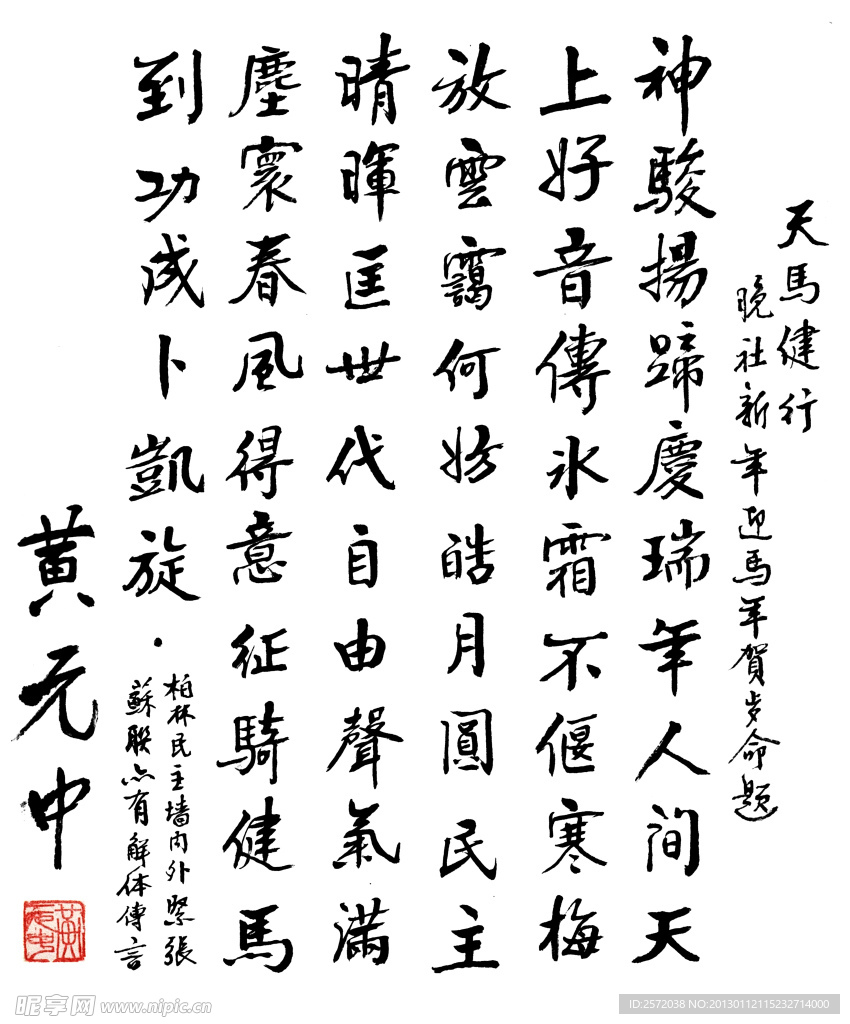 天馬健行
晚社新年迎馬年賀歲命題
神駿揚蹄慶瑞年人間天
上好音傳氷霜不偃寒梅
放雲靄何妨皓月圓民主
晴暉匡世代自由聲氣滿
塵寰春風得意征騎健馬
到功成卜凱旋.
柏林民主墙内外緊張
蘇聯亦有解体傳言
黄元中
昵享网 www.nipic.cn
ID:2572038 NO:20130112115232714000